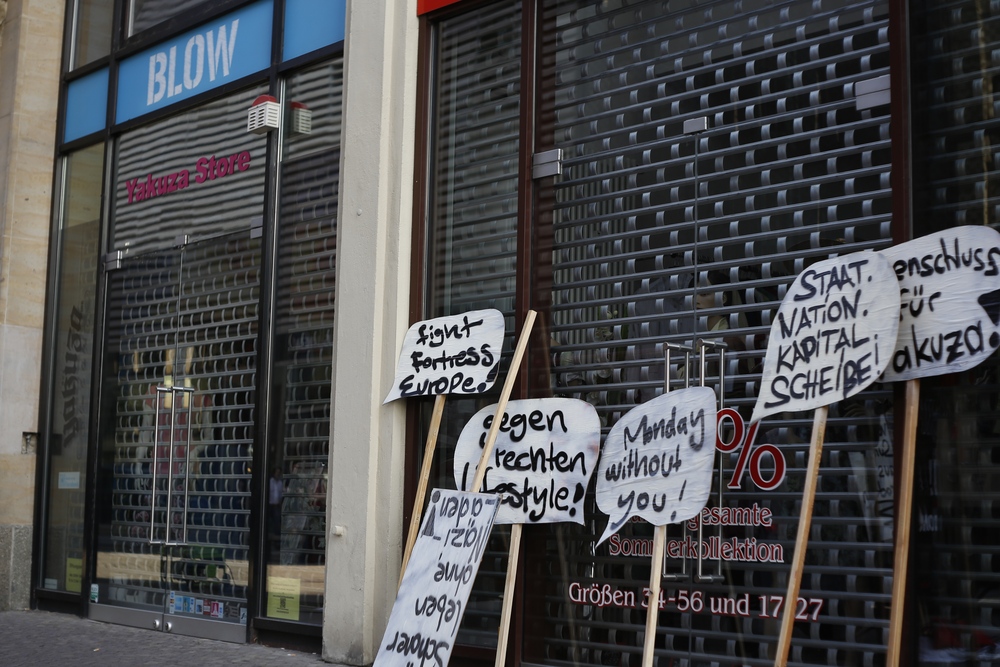 BLOW
Yakuza Store
fight
Fortress
Europe!
gegen
rechten
estyle!
Monday
without
you!
STAAT.
NATION.
KAPITAL.
SCHEIßE!
enschluss
für
akuza!
Schöner
leben
ohne
Nazi-
%
gesamte
Sommerkollektion
Größen 34-56 und 17-27